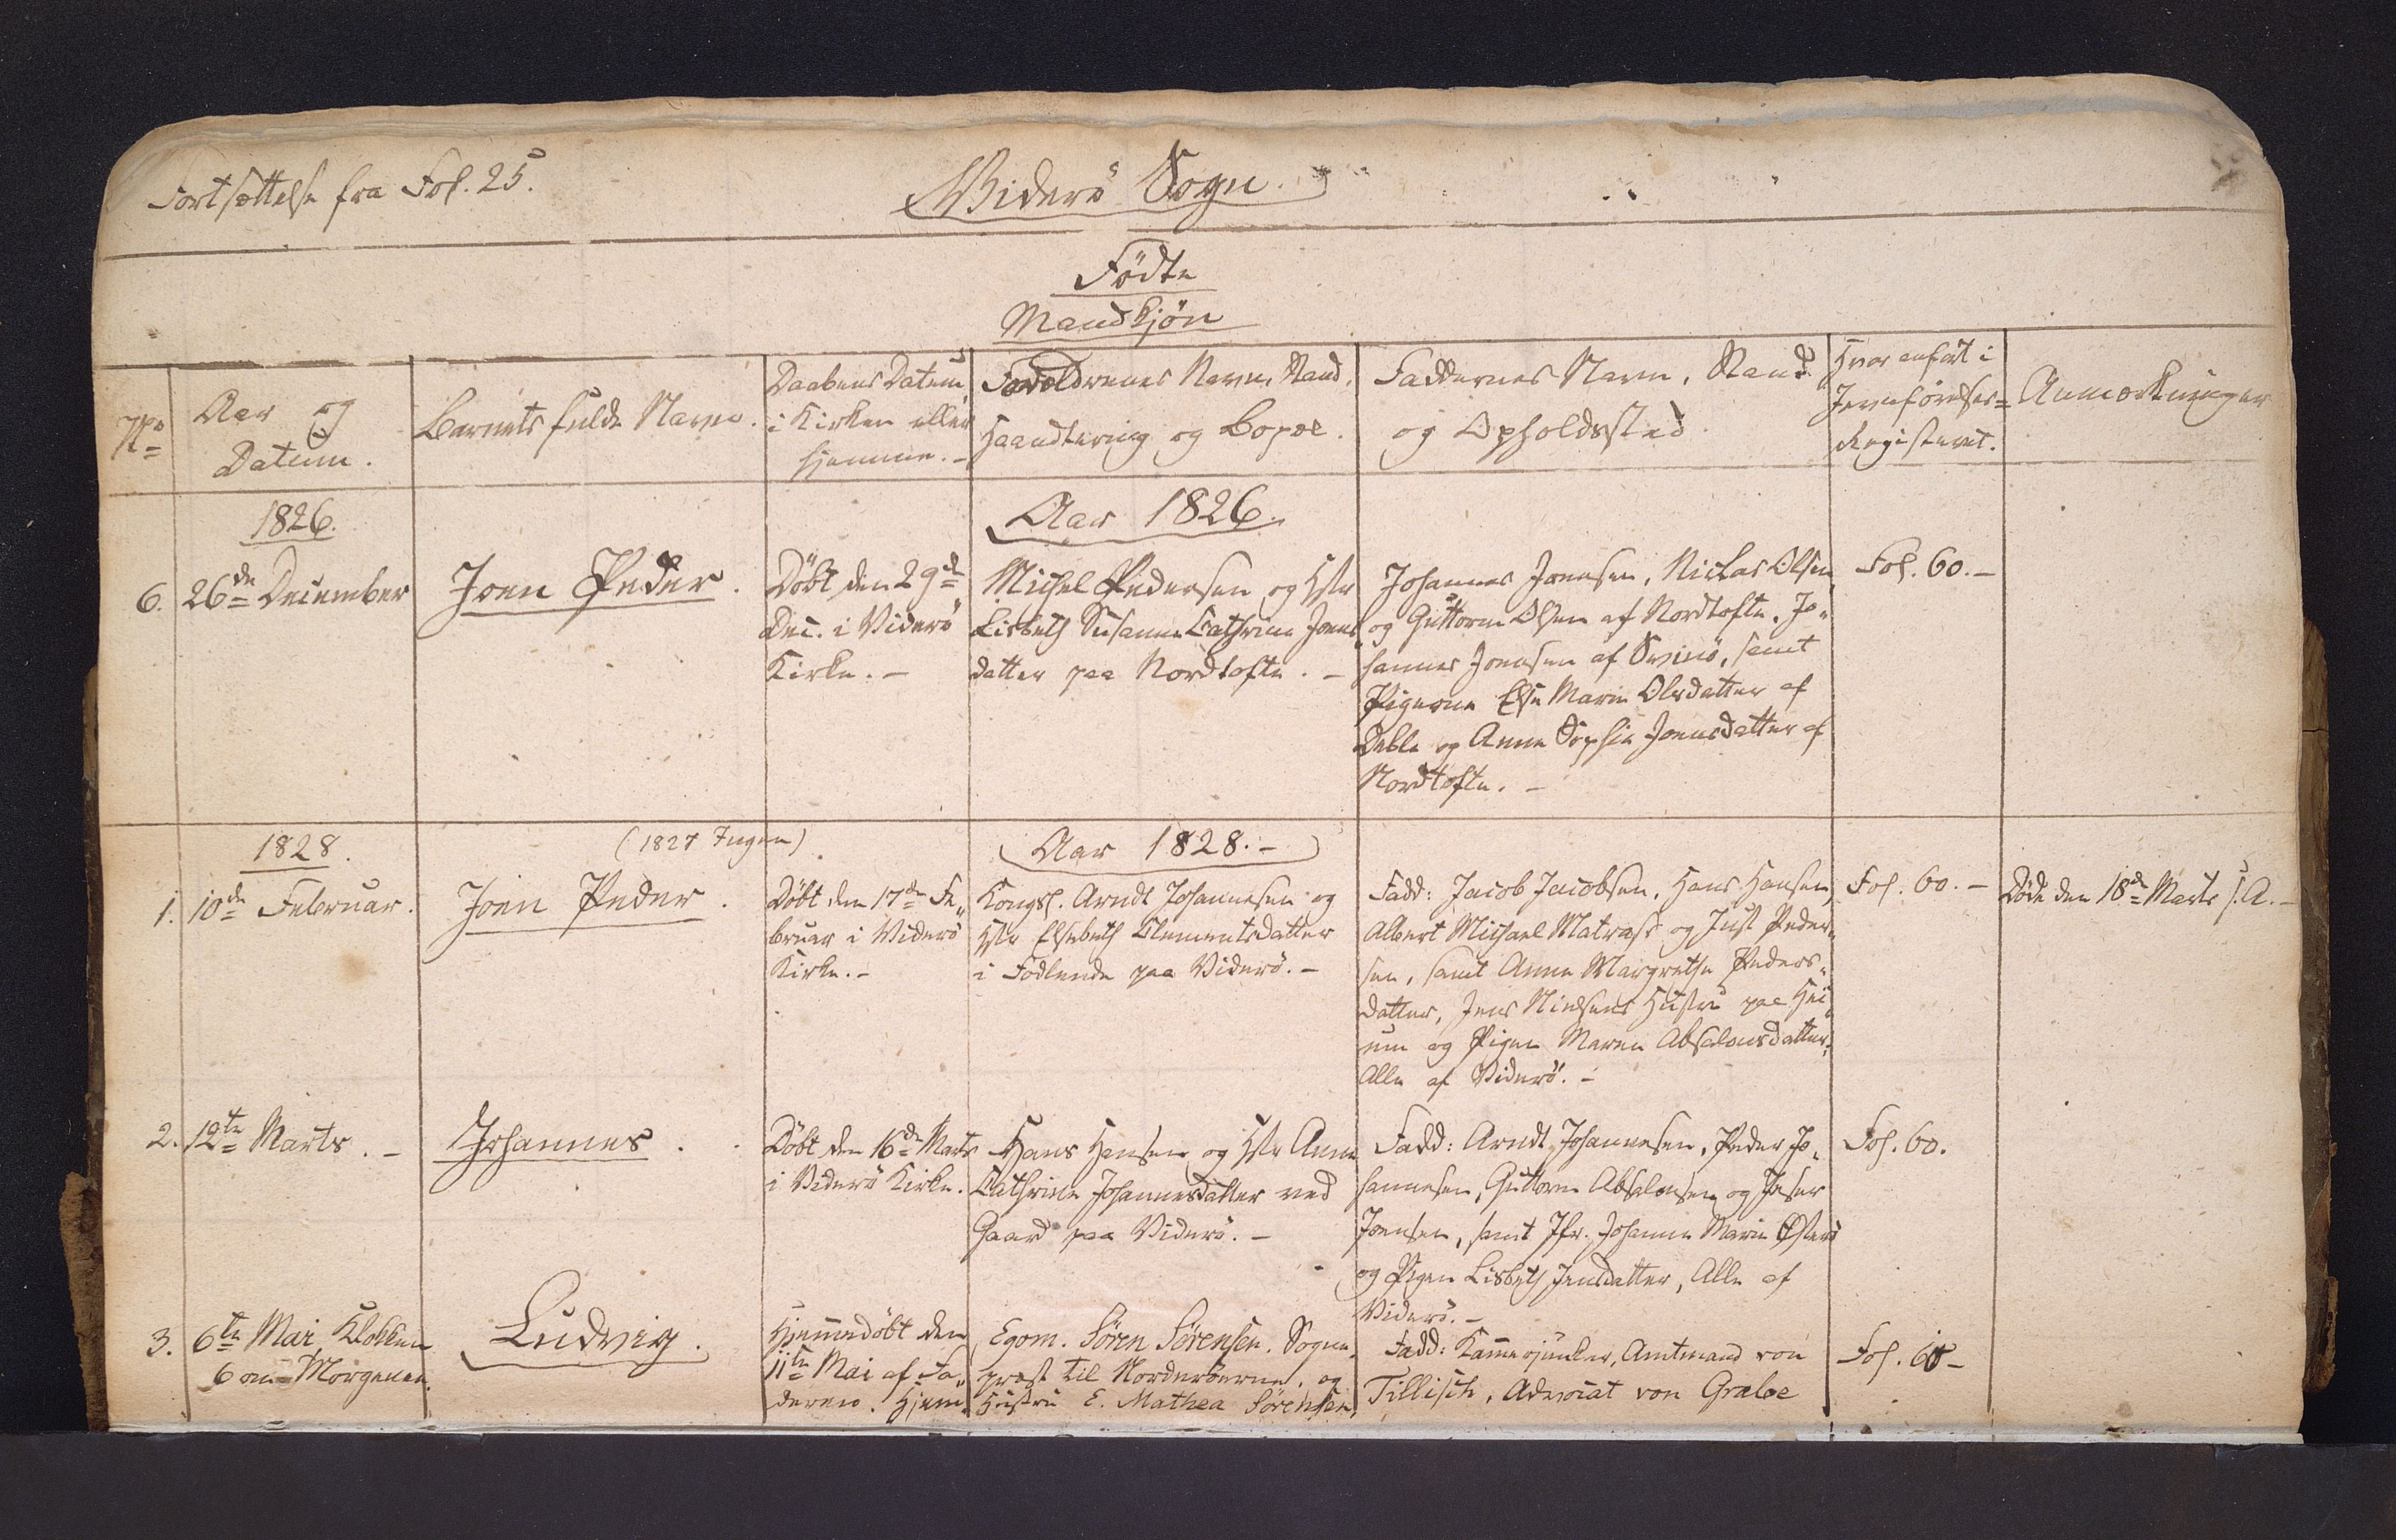 Fortsættelse fra Fol. 25.
Viderø Sogn.
Födte
Mandkjön
No
Aar og
Datum.
Barnets fulde Navn.
Daabens Datum
i Kirken eller
hjemme.-
Forældrenes Navn, Stand,
Haandtering og Bopæl.
Faddernes Navn, Stand
og Opholdssted.
Hvor anfört i
Jevnförelses=
Registeret.
Anmærkninger
1826.
Aar 1826.
6.
26de December
Joen Peder.
Döbt den 29de
Dec. i Viderö
Kirke.-
Michel Pedersen og Hstr
Lisbeth Susanne Cathrine Joens
datter paa Nordtofte.-
Johannes Joensen, Niclas Olsen
og Guttorm Olsen af Nordtofte, Jo-
hannes Joensen af Svinö, samt
Pigerne Else Marie Olsdatter af
Deble og Anne Sophie Joensdatter af
Nordtofte.-
Fol. 60.-
1828.
(1827 Ingen)
Aar 1828.-
1.
10de Februar.
Joen Peder.
Döbt den 17de Fe-
bruar i Viderö
Kirke.-
Kongsb. Arndt Johannesen og
Hstr Elsebeth Clementsdatter
i Todlende paa Viderö.-
Fadd: Jacob Jacobsen, Hans Hansen,
Albert Michael Matrass og Just Peder-
sen, samt Anne Margrethe Peders-
datter, Jens Nielsens Hustru paa
og Pigen Maren Absalonsdatter,
Alle af Viderö.-
Fol. 60.-
Döde den 18de Marts s. A.-
2.
12te Marts.-
Johannes.
Döbt den 16de Marts
i Viderö Kirke.
Hans Hansen og Hstr Anne
Cathrine Johannesdatter ved
Gaard paa Viderö.-
Fadd: Arndt Johannesen, Peder Jo-
hannesen, Guttorm Absalonsen og
Joensen, samt Jfr. Johanne Marie Österö
og Pigen Lisbeth Jensdatter, Alle af
Viderö.-
Fol. 60.
3.
6te Mai, Klokken
6 om Morgenen.
Ludvig.
Hjemmedöbt den
11te Mai af Fa-
deren. Hjem-
Egom. Sören Sörensen, Sogne-
præst til Norderöerne, og
Hustru E. Mathea Sörensen,
Fadd: Kammerjunker, Amtmand von
Tillisch, Advocat von Grabe
Fol. 60-